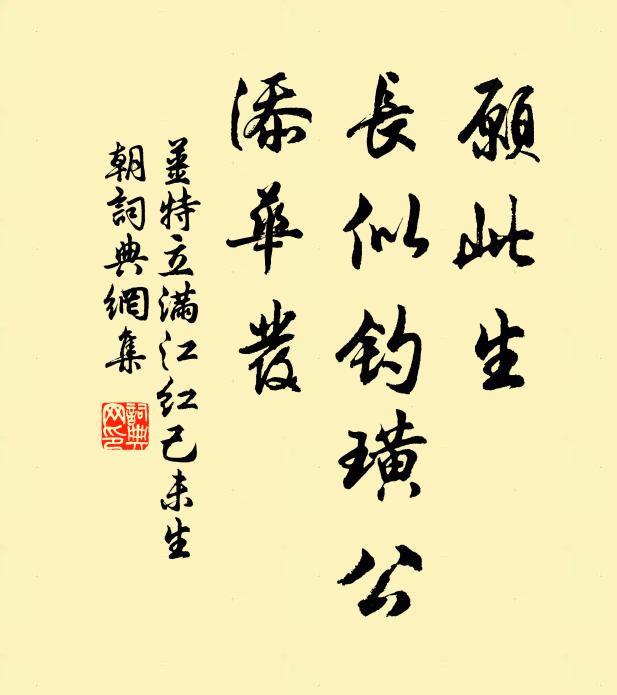 願此生
長似釣璜公
添華發
姜特立滿江紅己未生
朝詞典網集
詞典网印